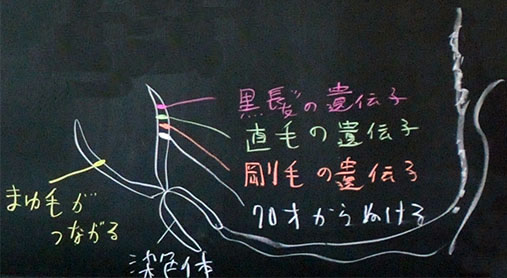 黒髪の遺伝子
直毛の遺伝子
剛毛の遺伝子
70才からぬける
まゆ毛が
つながる
染色体